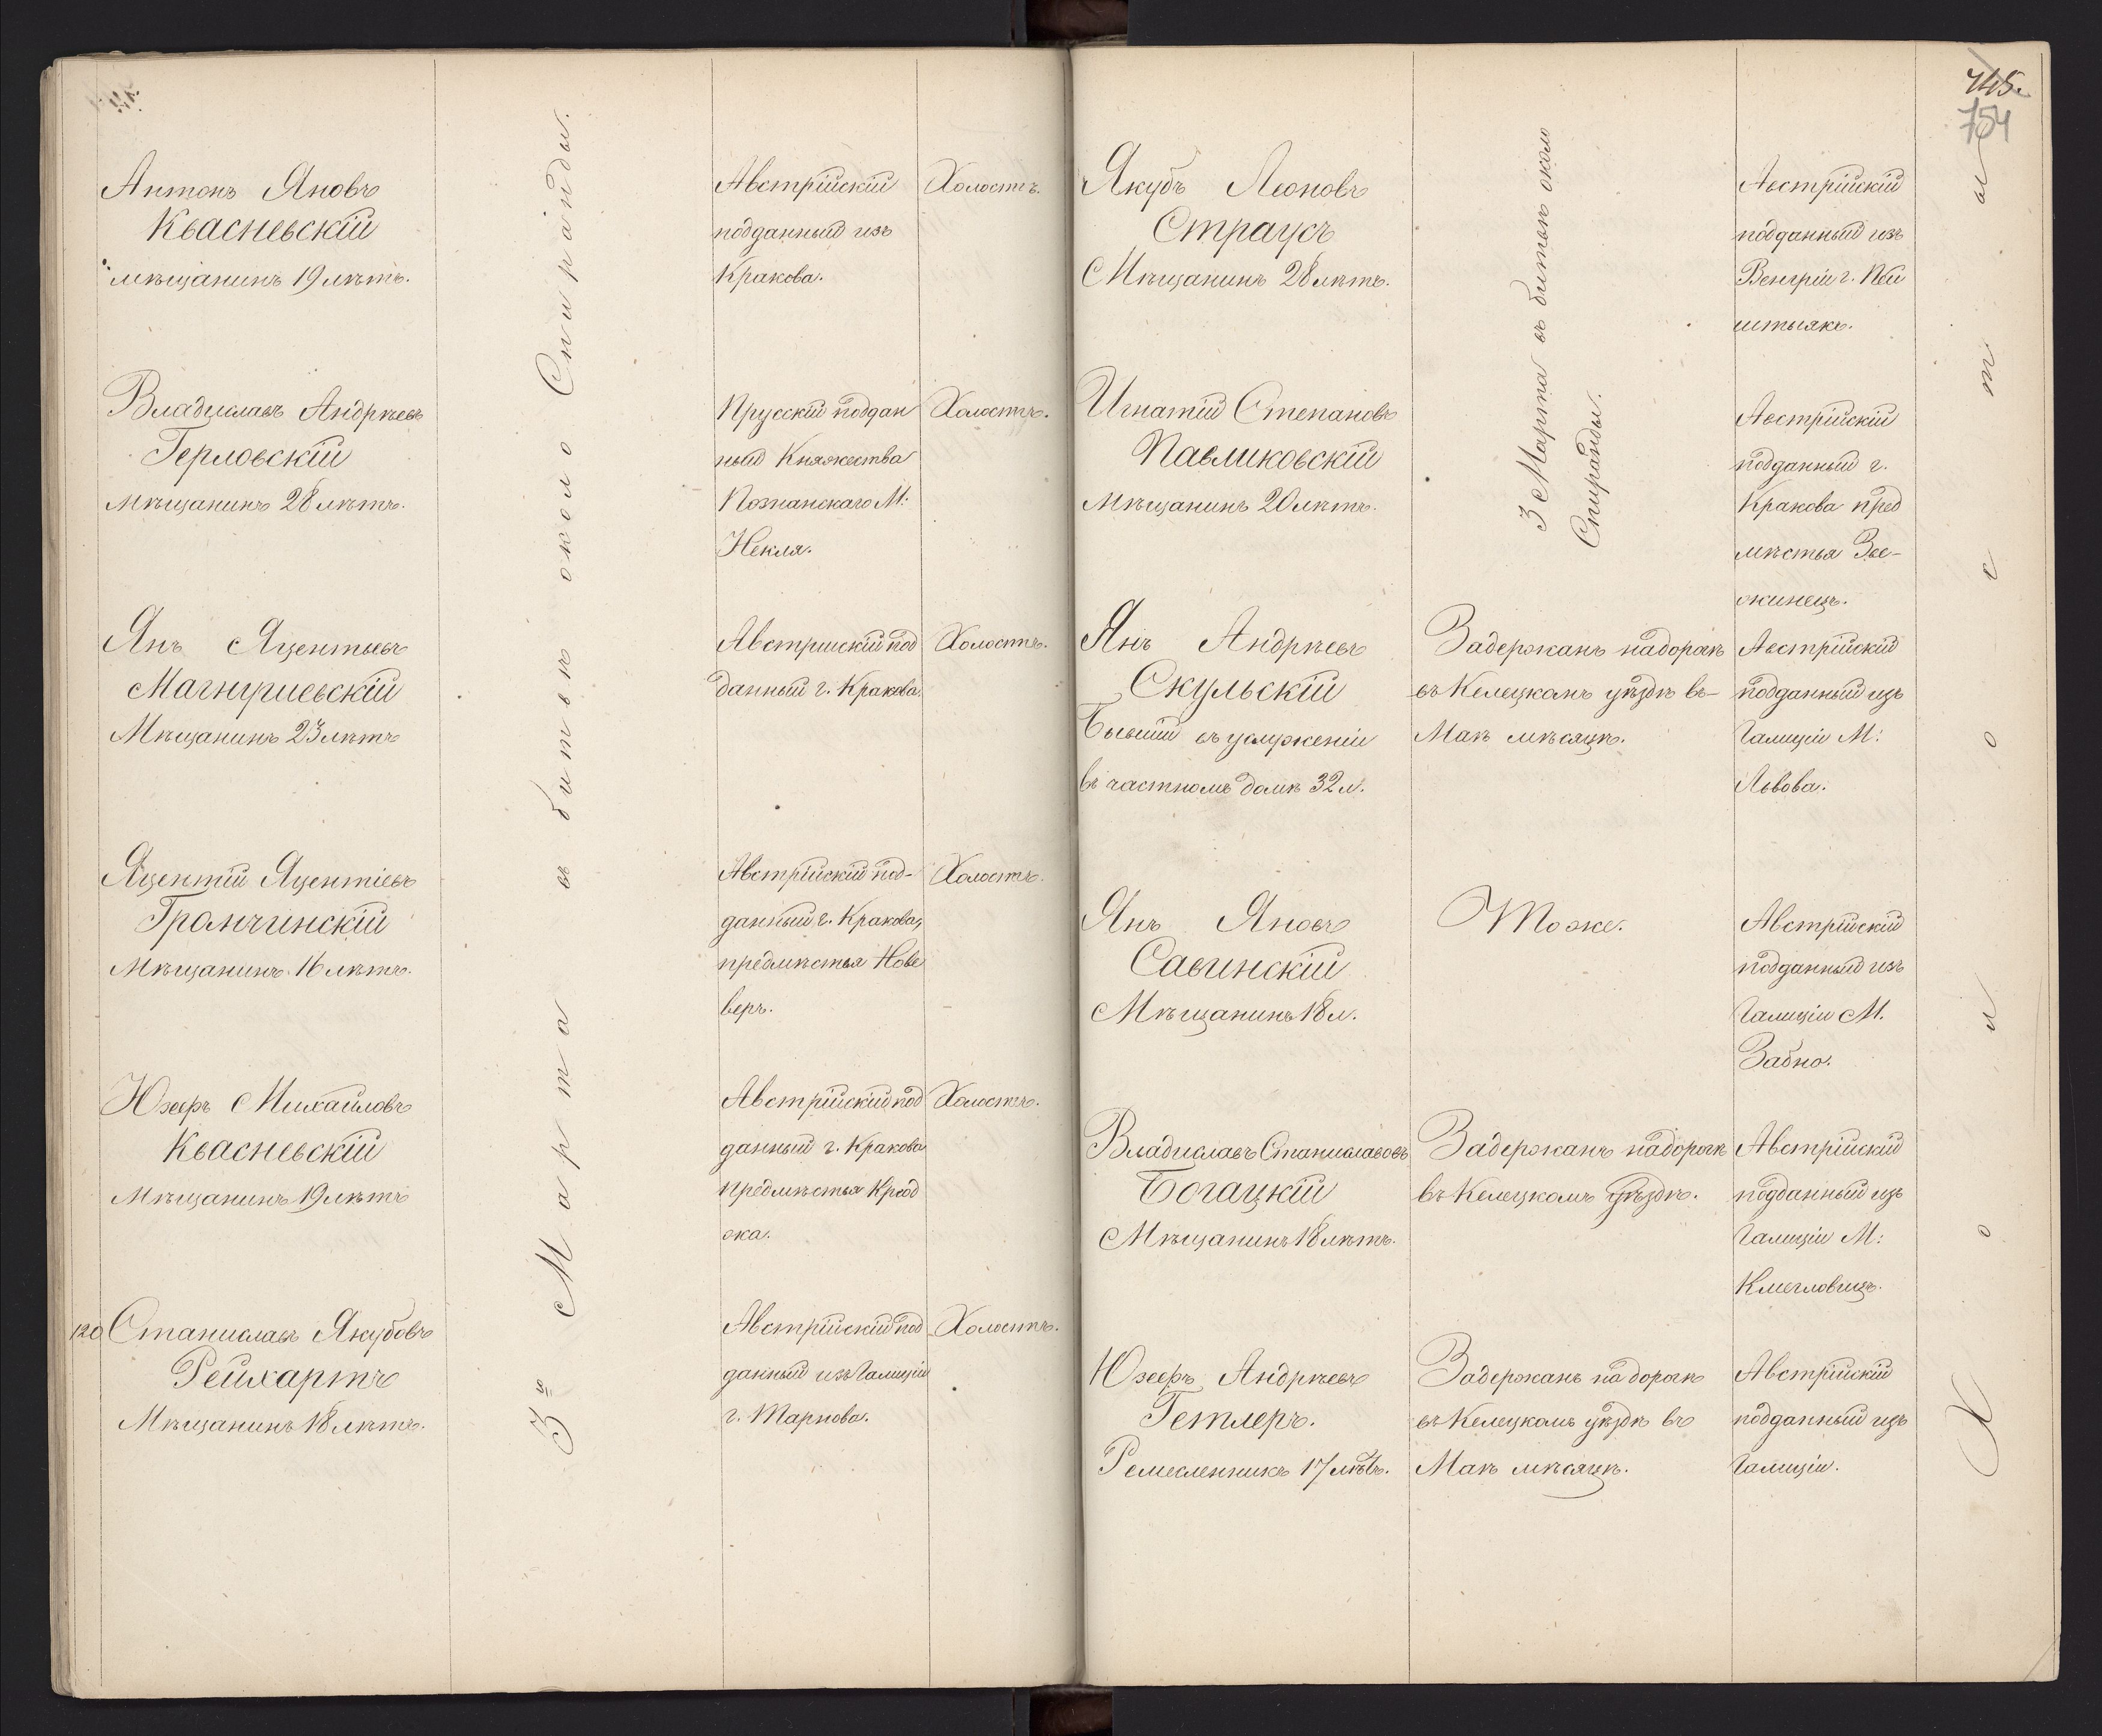 Антонъ Яновъ
Квасневскій
мѣщанинъ 19 лѣтъ.
Австрійскій
подданный изъ
Кракова.
Холостъ.
Владиславъ Андрѣевъ
Герловскій
Мѣщанинъ 28 лѣтъ.
Прусскій поддан
ный Княжества
Познанскаго М:
Некля.
Холостъ.
Янъ Яцентьевъ
Магнушевскій
Мѣщанинъ 23 лѣтъ
Австрійскій под
данный г. Кракова.
Холостъ.
Яцентій Яцентіевъ
Громчинскій
Мѣщанинъ 16 лѣтъ.
Австрійскій под-
данный г. Кракова,
предмѣстья Нове
веръ.
Холостъ.
Юзефъ Михайловъ
Квасневскій
Мѣщанинъ 19 лѣтъ
Австрійскій под
данный г. Кракова
предмѣстья Крод
жа.
Холостъ.
120 Станиславъ Якубовъ
Рейхартъ
Мѣщанинъ 18 лѣтъ.
Австрійскій под
данный изъ Галиціи
г. Тарнова.
Холостъ.
3го Марта въ битвѣ около Скиранды.
745.
754
Якубъ Леоновъ
Страусъ
Мѣщанинъ 28 лѣтъ.
Австрійскій
подданный изъ
Венгріи г. Ней
штыякъ.
Игнатій Степановъ
Павликовскій
Мѣщанинъ 20 лѣтъ.
Австрійскій
подданный г.
Кракова пред
мѣстья Зве-
жинецъ.
3 Марта въ битвѣ около
Скиранды.
Янъ Андрѣевъ
Скульскій
Бывшій въ услуженіи
въ частномъ домѣ 32 л.
Задержанъ на дорогѣ
въ Келецкомъ уѣздѣ въ-
Маѣ мѣсяцѣ.
Австрійскій
подданный изъ
Галиціи М:
Львова.
Янъ Яновъ
Савинскій
Мѣщанинъ 18 л.
Тоже.
Австрійскій
подданный изъ
Галиціи М.
Забно.
Владиславъ Станиславовъ
Богацкій
Мѣщанинъ 18 лѣтъ.
Задержанъ на дорогѣ
въ Келецкомъ уѣздѣ.
Австрійскій
подданный изъ
Галиціи М:
Юзефъ Андрѣевъ
Гетлеръ.
Ремесленникъ 17 лѣтъ.
Задержанъ на дорогѣ
въ Келецкомъ уѣздѣ въ
Маѣ мѣсяцѣ.
Австрійскій
подданный изъ
Галиціи.
Холосты